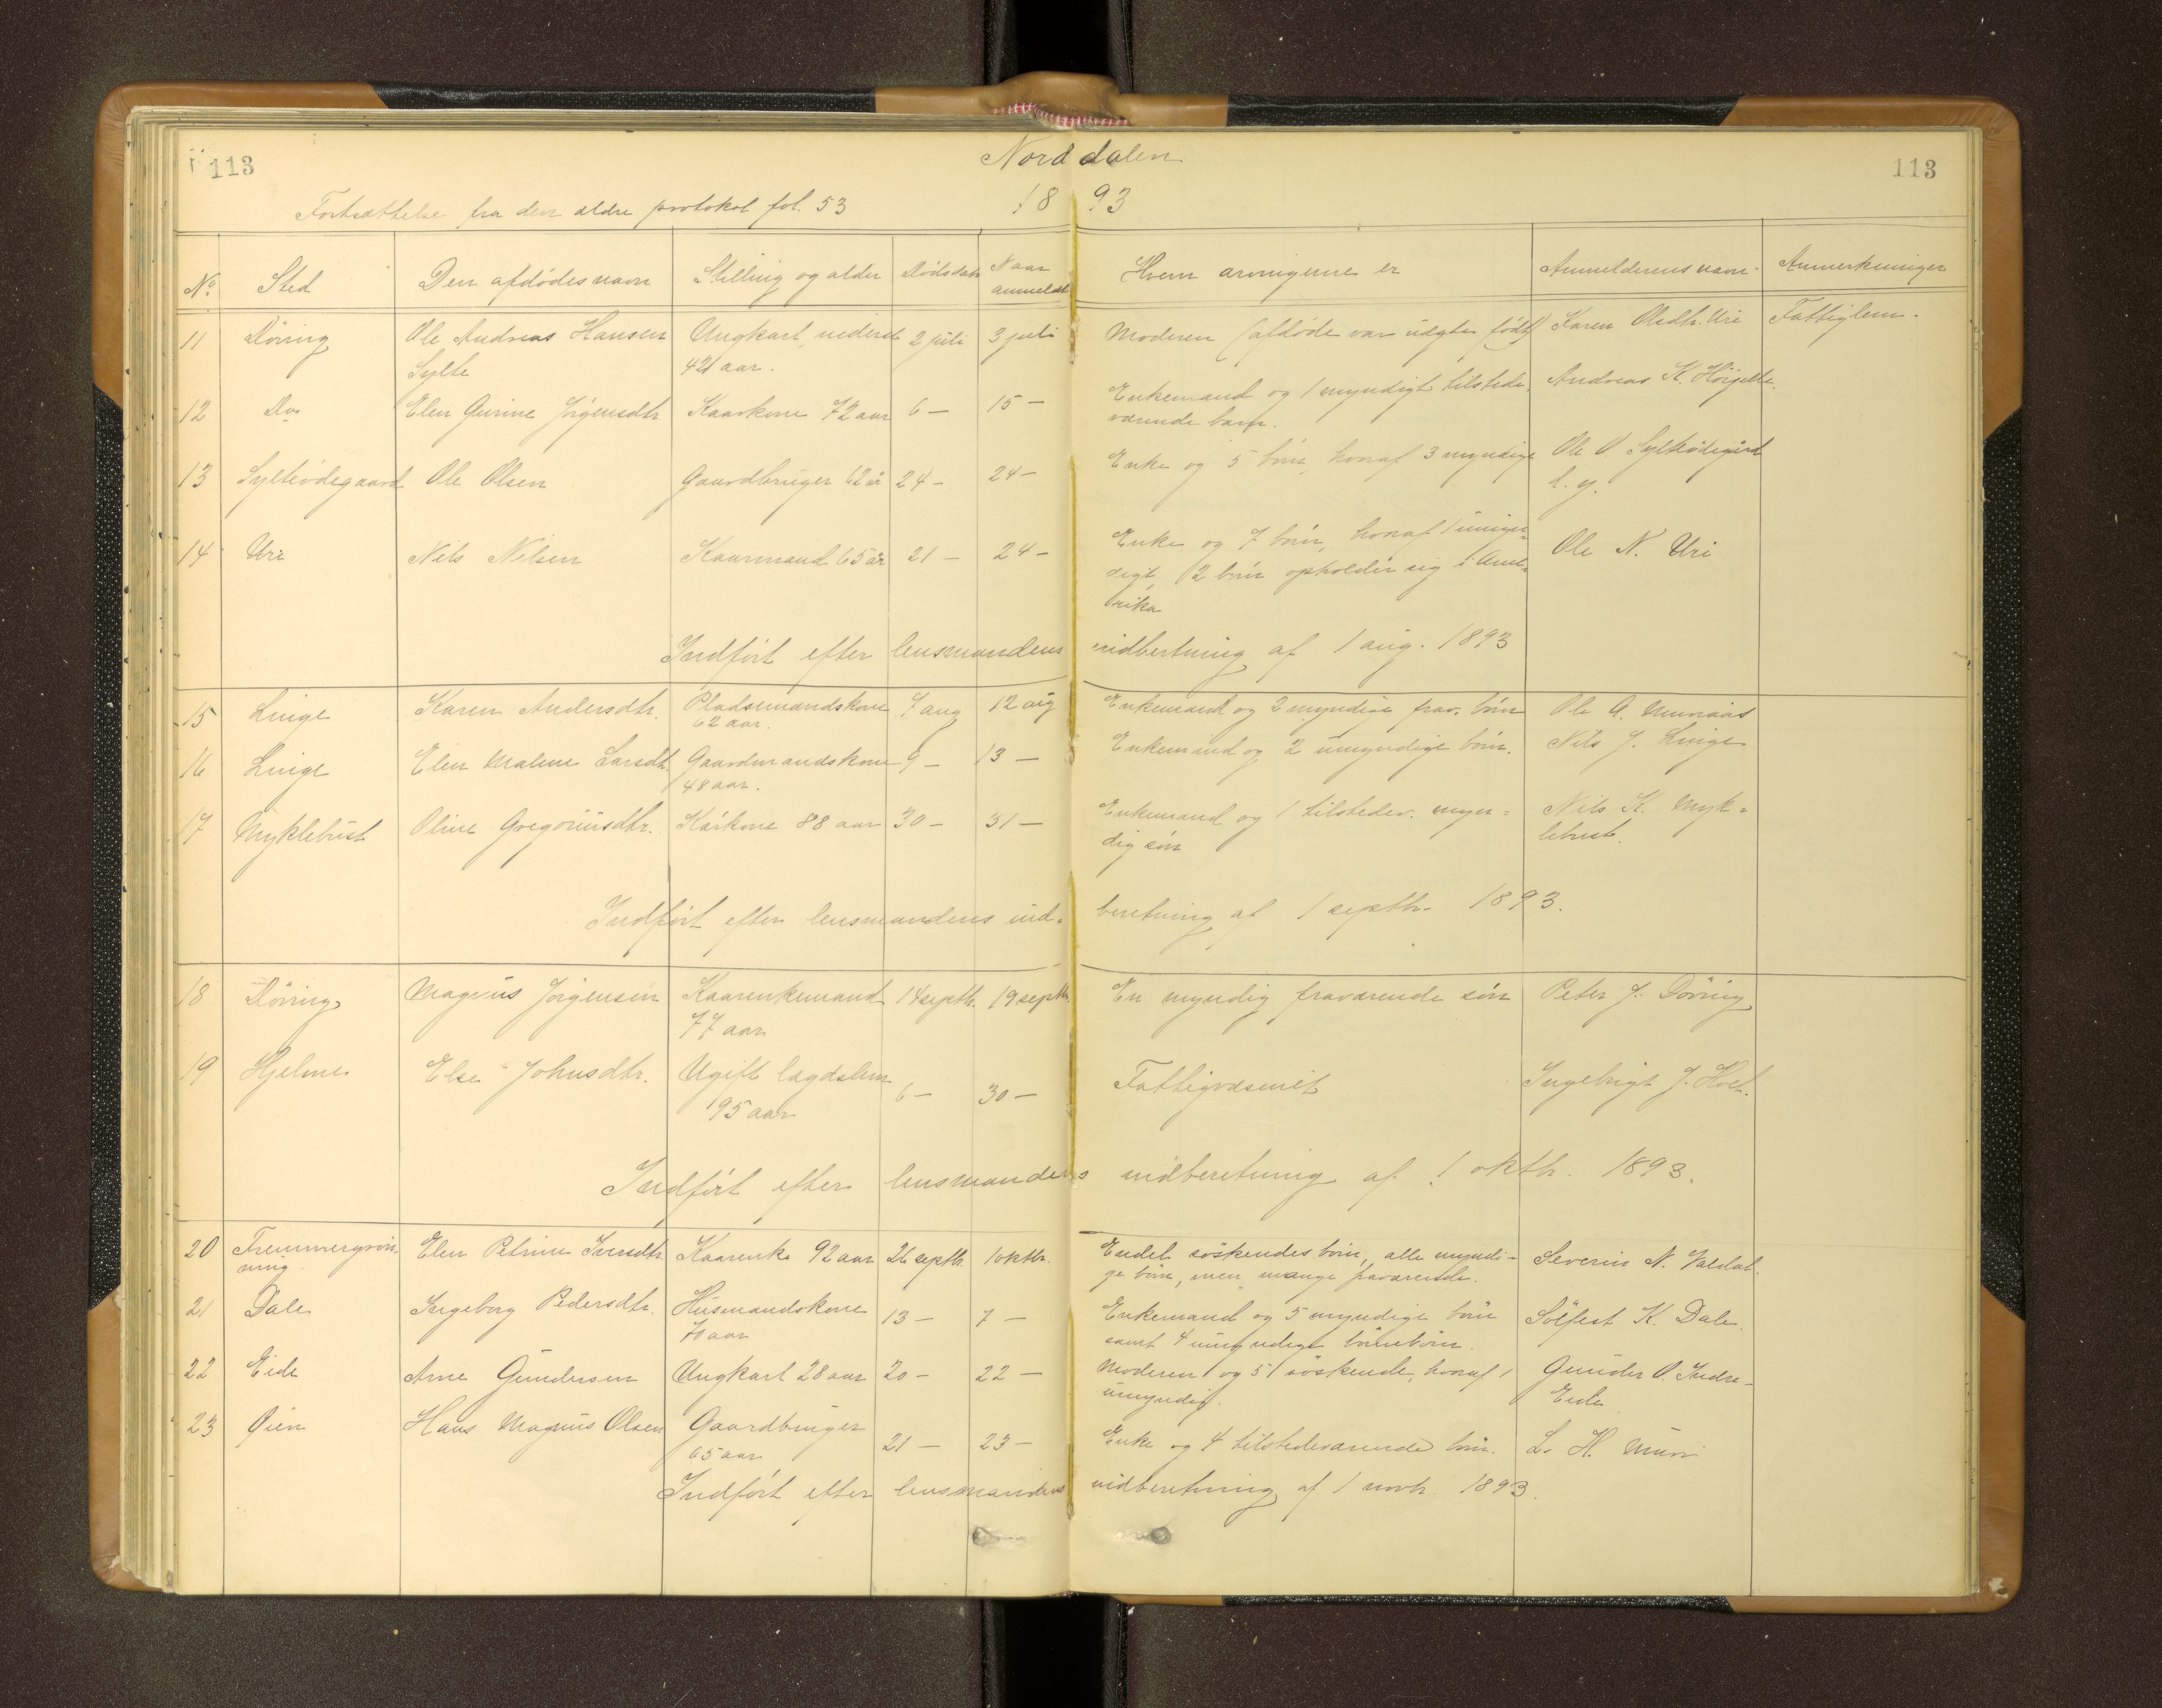 113
Norddalen
113
Fortsættelse fra den ældre protokol fol. 53
1893
No
Sted
Den afdødes navn
Stilling og alder
Dødsdato
Naar anmeldt
Hvem arvingerne er
Anmelderens navn
Anmerkninger
11 Döving Ole Andreas Hansen Ungkarl 2 juli 3 juli Moderen (afdøde var uægte født) Karen Olsdtr. Uri Fattiglem.
Sylte 42 aar.
12 Do Elen Gurine Jörgensdtr Kaarkone 72 aar 6 — 15 — Enkemand og 1 myndigt tilstede- Andreas K.
værende barn.
13 Sylteödegaard Ole Olsen Gaardbruger 62 år 24 — 24 — Enke og 5 börn, hvoraf 3 myndige Ole O Sylteödegård
14 Uri Nils Nilsen Kaarmand 65 år 21 — 24 — Enke og 7 börn, hvoraf 1 umyn- Ole N. Uri
digt, 2 börn opholder sig i Ame-
rika
Indfört efter lensmandens indberetning af 1 aug. 1893
15 Linge Karen Andersdtr. Pladsemandskone 7 aug 12 aug Enkemand og 2 myndige frav. börn Ole A.
62 aar.
16 Linge Elen Malene Larsdt. Gaardmandskone 9 — 13 — Enkemand og 2 umyndige börn. Nils J. Linge
48 aar.
17 Myklebust Oline Gregoriusdtr. Kårkone 88 aar 30 — 31 — Enkemand og 1 tilstedev. myn- Nils K. Myk-
dig sön lebust.
Indfört efter lensmandens ind- beretning af 1 septbr. 1893.
18 Döving Magnus Jörgensen Kaarenkemand 14 septbr. 19 septbr. En myndig fraværende sön Peter J. Döving
77 aar
19 Hjelme Else Johnsdtr. Ugift lægdslem 6 — 30 — Fattigvæsenet Ingebrigt J.
95 aar
Indfört efter lensmandens indberetning af 1 oktbr. 1893.
20 Elen Petrine Iversdtr Kaarenke 92 aar 26 septbr. 1 oktbr. Endel söskendes börn, alle myndi- Severin N. Valdal.
ge börn, men mange fraværende.
21 Dale Ingeborg Pedersdtr. Husmandskone 13 — 7 — Enkemand og 5 myndige börn Sölfest K. Dale
70 aar samt 4 umyndige börnebörn.
22 Eide Arne Gundersen Ungkarl 28 aar 20 — 22 — Moderen og 5 söskende, hvoraf 1 Gunder O. Indre-
umyndig. Eide
23 Øien Hans Magnus Olsen Gaardbruger 21 — 23 — Enke og 4 tilstedeværende börn. L. H. Muri
65 aar
Indfört efter lensmandens indberetning af 1 novbr. 1893.